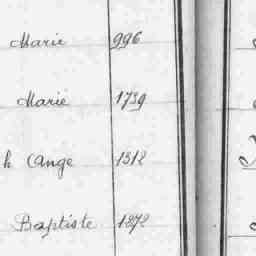 Marie 996
Marie 1739
h Ange 1312
Baptiste 1272